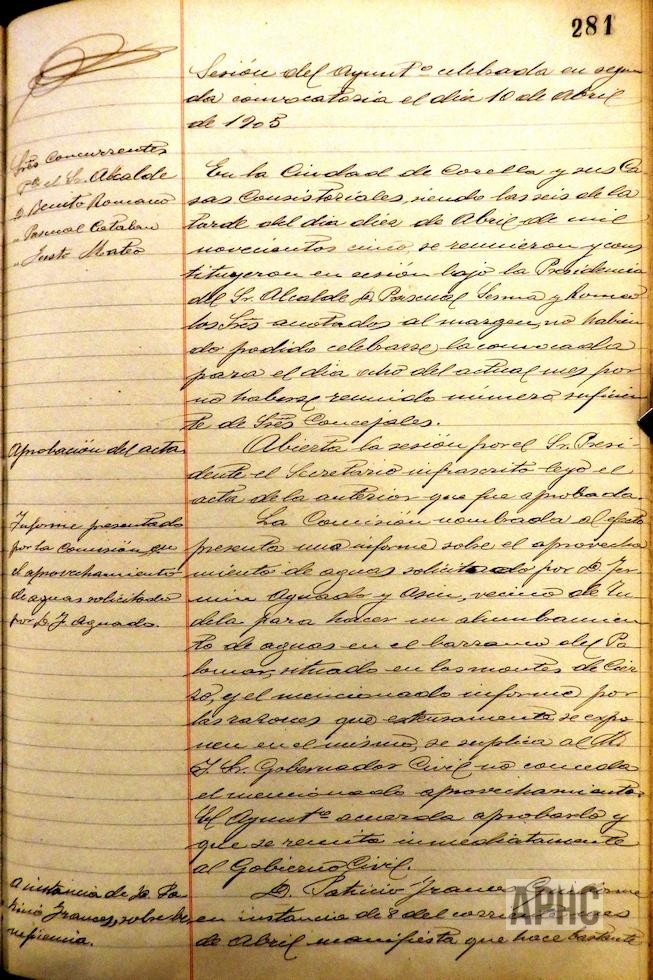 281
Sesión del Ayuntº celebrada en segun
da convocatoria el dia 10 de Abril
de 1905
Sres Concurrentes
Pte el Sr. Alcalde
D. Benito Romano
" Pascual Catalan
" Justo Mateo
En la Ciudad de Corella y sus Ca
sas Consistoriales, siendo las seis de la
tarde del dia diez de Abril de mil
novecientos cinco, se reunieron y cons
tituyeron en sesión bajo la Presidencia
del Sr. Alcalde D. Pascual Sesma y Romeo
los Sres anotados al margen, no habien
do podido celebrarse la convocada
para el dia ocho del actual mes por
no haberse reunido número suficien
te de Sres Concejales.
Aprobación del acta
Abierta la sesión por el Sr. Presi
dente el Secretario infrascrito leyó el
acta de la anterior que fue aprobada.
Informe presentado
por la Comisión en
el aprovechamiento
de aguas solicitado
por D. F. Aguado.
La Comisión nombrada al efecto
presenta una informe sobre el aprovecha
miento de aguas solicitado por D. Fer
min Aguado y Asin, vecino de Tu
dela para hacer un alumbramien
to de aguas en el barranco del Pa
lomar, situado en los montes de Cier
zo, y el mencionado informe por
las razones que extensamente se expo
nen en el mismo, se suplica al M.
I. Sr. Gobernador Civil no conceda
el mencionado aprovechamiento.
El Ayuntº acuerda aprobarlo y
que se remita inmediatamente
al Gobierno Civil.
A instancia de D. Pa
tricio Frances, sobre be
neficencia.
D. Patricio Frances
en instancia de 8 del corriente mes
de Abril manifiesta que hace bastante
APHC